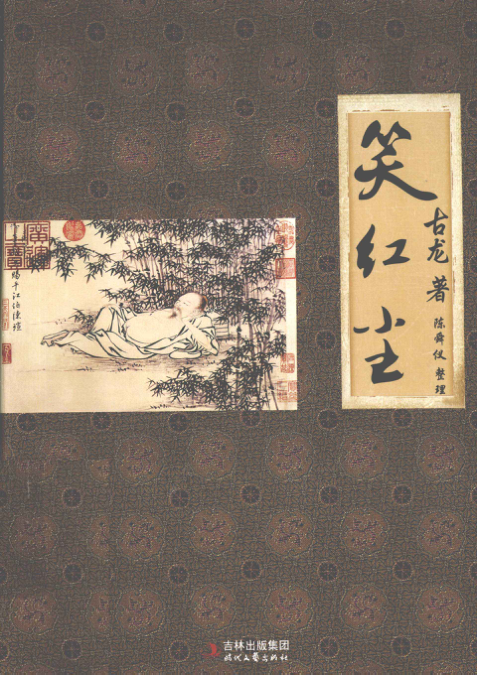 笑红尘
古龙 著
陈舜仪 整理
吉林出版集团
时代文艺出版社